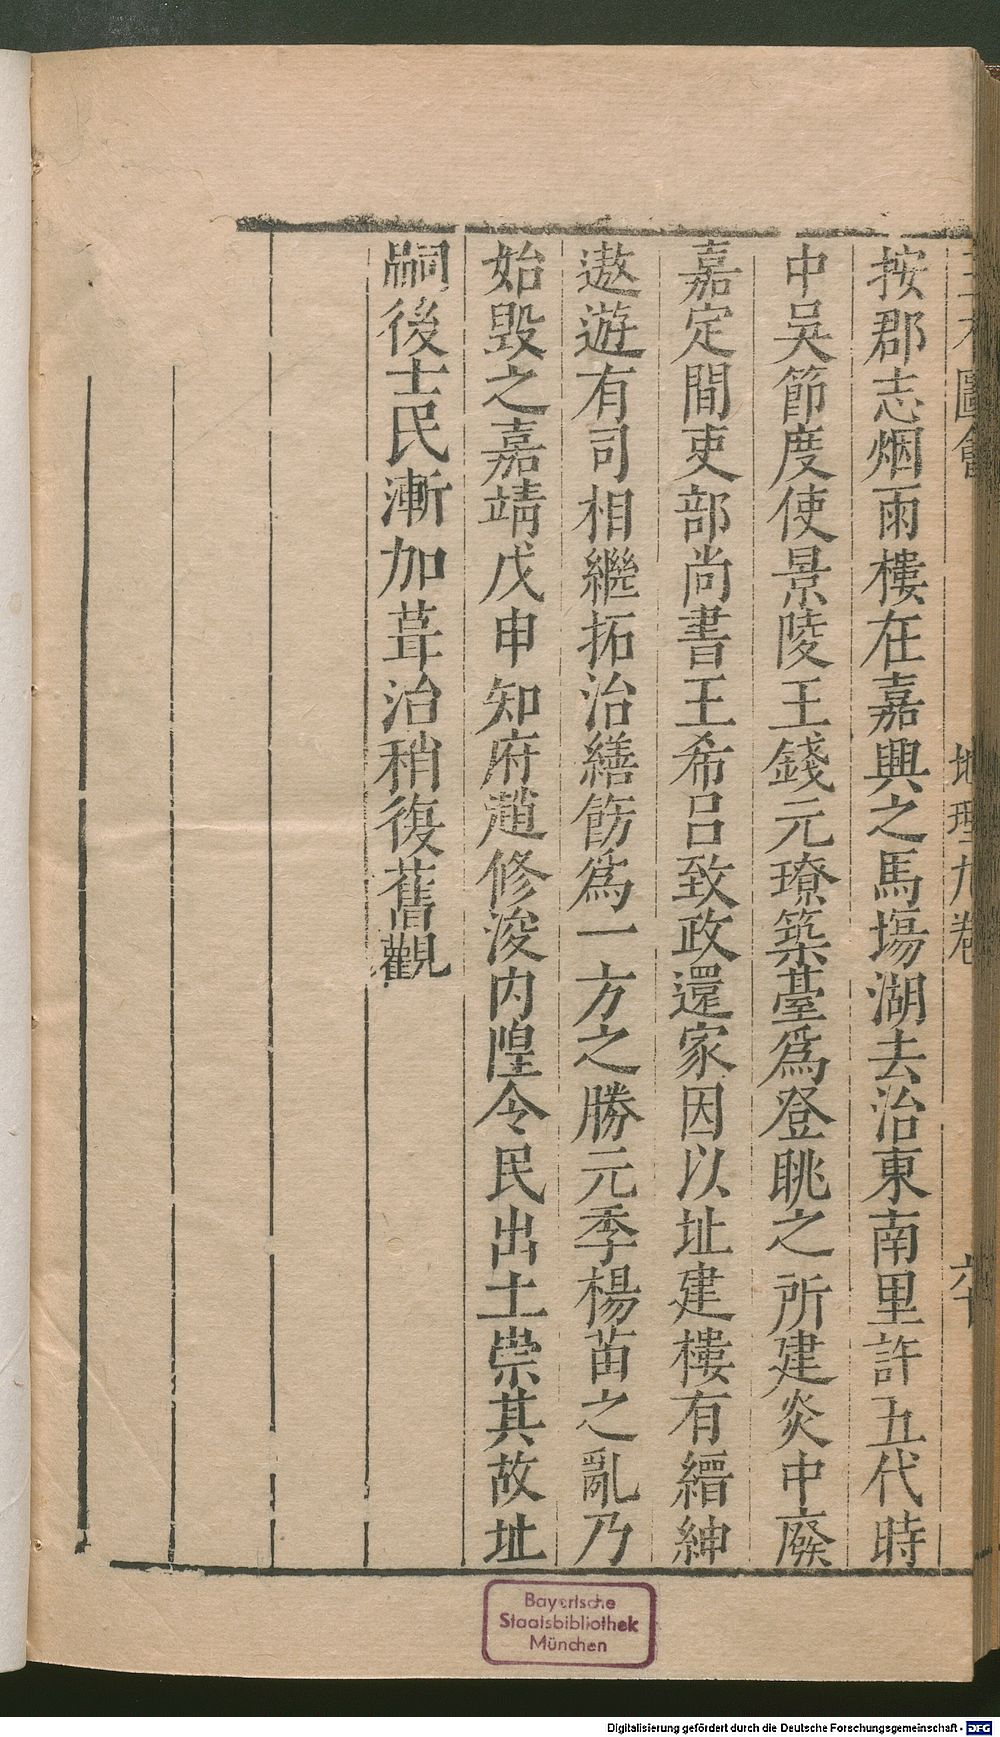 三才圖會 地理九卷 六十
按郡志烟雨樓在嘉興之馬塲湖去治東南里許五代時
中吳節度使景陵王錢元璙築臺爲登眺之所建炎中廢
嘉定間吏部尚書王希呂致政還家因以址建樓有縉紳
遨遊有司相繼拓治繕飭爲一方之勝元季楊苗之亂乃
始毀之嘉靖戊申知府趙修浚内隍令民出土崇其故址
嗣後士民漸加葺治稍復舊觀
Bayerische
Staatsbibliothek
München
Digitalisierung gefördert durch die Deutsche Forschungsgemeinschaft - DFG